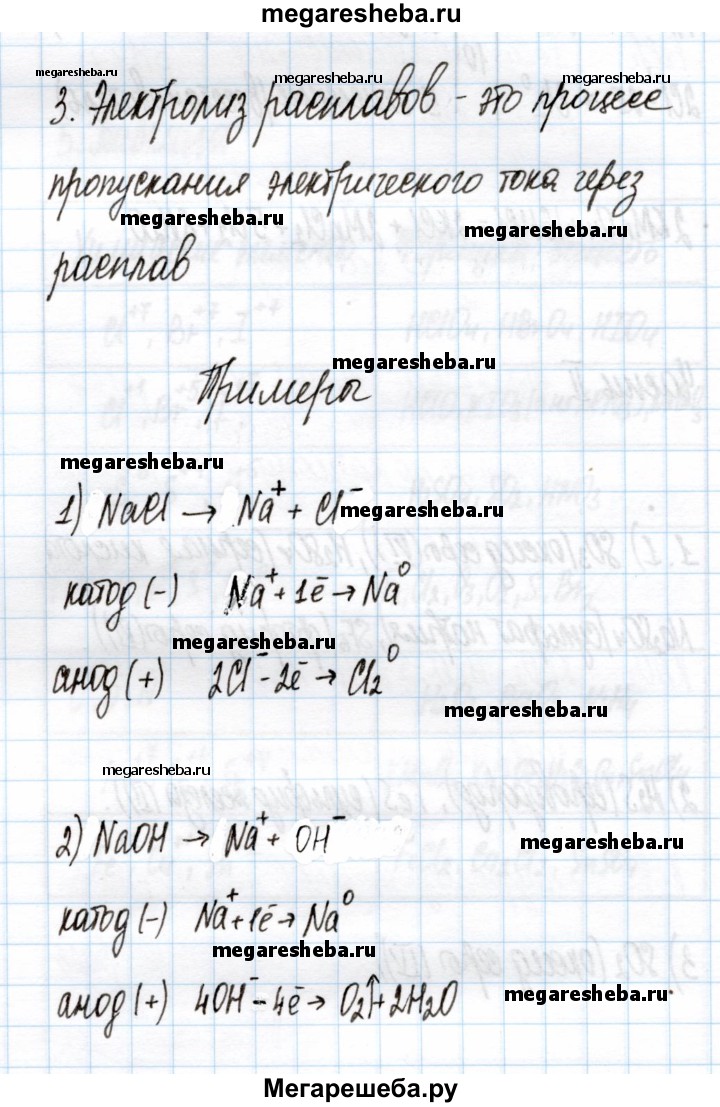 megaresheba.ru
megaresheba.ru megaresheba.ru megaresheba.ru
3. Электролиз расплавов - это процесс
пропускания электрического тока через
megaresheba.ru megaresheba.ru
расплав
megaresheba.ru
Примеры
megaresheba.ru
1) NaCl → Na⁺ + Cl⁻ megaresheba.ru
катод (-) Na⁺ + 1ē → Na⁰
megaresheba.ru
анод (+) 2Cl⁻ - 2ē → Cl₂⁰
megaresheba.ru
megaresheba.ru
2) NaOH → Na⁺ + OH⁻
megaresheba.ru
катод (-) Na⁺ + 1ē → Na⁰
megaresheba.ru
анод (+) 4OH⁻ - 4ē → O₂↑ + 2H₂O megaresheba.ru
Мегарешеба.ру